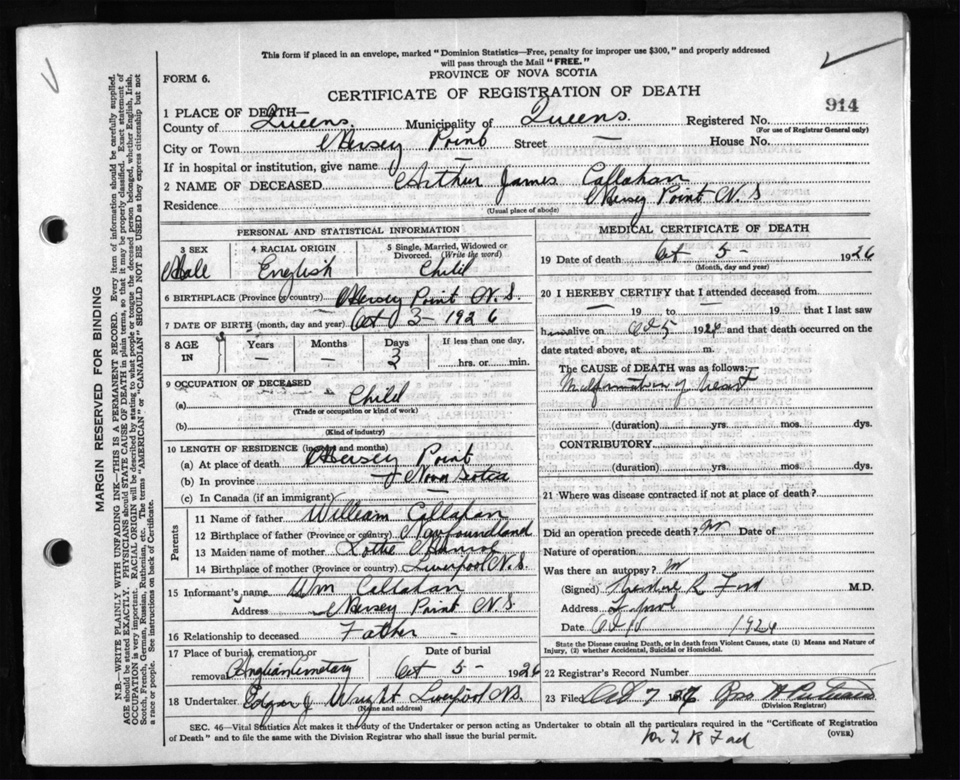 This form if placed in an envelope, marked "Dominion Statistics—Free, penalty for improper use $300," and properly addressed
will pass through the Mail "FREE."
FORM 6.
PROVINCE OF NOVA SCOTIA
CERTIFICATE OF REGISTRATION OF DEATH
914
1 PLACE OF DEATH—
County of Queens. Municipality of Queens. Registered No.
(For use of Registrar General only)
City or Town Mersey Point Street — House No.
If in hospital or institution, give name —
2 NAME OF DECEASED Arthur James Callahan
Residence Mersey Point N.S
(Usual place of abode)
PERSONAL AND STATISTICAL INFORMATION
3 SEX Male
4 RACIAL ORIGIN English
5 Single, Married, Widowed or Divorced. (Write the word) Child
6 BIRTHPLACE (Province or country) Mersey Point N.S.
7 DATE OF BIRTH (month, day and year) Oct 3 - 1926
8 AGE IN Years — Months — Days 3 If less than one day, hrs. or min.
9 OCCUPATION OF DECEASED
(a) Child
(Trade or occupation or kind of work)
(b)
(Kind of industry)
10 LENGTH OF RESIDENCE (in years and months)
(a) At place of death Mersey Point
(b) In province Nova Scotia
(c) In Canada (if an immigrant) —
Parents
11 Name of father William Callahan
12 Birthplace of father (Province or country) Newfoundland
13 Maiden name of mother Lottie
14 Birthplace of mother (Province or country) Liverpool N.S.
15 Informant's name Wm Callahan
Address Mersey Point N.S.
16 Relationship to deceased Father -
17 Place of burial, cremation or removal Anglican Cemetary Date of burial Oct 5 - 1926
18 Undertaker Edgar J Wright Liverpool N.S.
(Name and address)
MEDICAL CERTIFICATE OF DEATH
19 Date of death Oct 5 1926
(Month, day and year)
20 I HEREBY CERTIFY that I attended deceased from
— 19 to — 19 that I last saw
h alive on Oct 5 1926 and that death occurred on the
date stated above, at m.
The CAUSE of DEATH was as follows:
Malformation of heart
(duration) yrs. mos. dys.
CONTRIBUTORY
(duration) yrs. mos. dys.
21 Where was disease contracted if not at place of death?
Did an operation precede death? No Date of
Nature of operation
Was there an autopsy? No
(Signed) Theodore R Ford M.D.
Address
Date Oct 1926
State the Disease causing Death, or in Death from Violent Causes, state (1) Means and Nature of
Injury, (2) whether Accidental, Suicidal or Homicidal.
22 Registrar's Record Number
23 Filed Oct 7 1926
(Division Registrar)
SEC. 46—Vital Statistics Act makes it the duty of the Undertaker or person acting as Undertaker to obtain all the particulars required in the "Certificate of Registration
of Death" and to file the same with the Division Registrar who shall issue the burial permit.
(OVER)
Dr T. R Ford
MARGIN RESERVED FOR BINDING
N.B.—WRITE PLAINLY WITH UNFADING INK—THIS IS A PERMANENT RECORD. Every item of information should be carefully supplied.
AGE should be stated EXACTLY. PHYSICIANS should STATE CAUSE OF DEATH in plain terms, so that it may be properly classified. Exact statement of
OCCUPATION is very important. RACIAL ORIGIN will be described by stating to what people or tongue the deceased person belonged, whether English, Irish,
Scotch, French, German, Russian, Ruthenian, etc. The terms "AMERICAN" or "CANADIAN" SHOULD NOT BE USED as they express citizenship but not
a race or people. See instructions on back of Certificate.